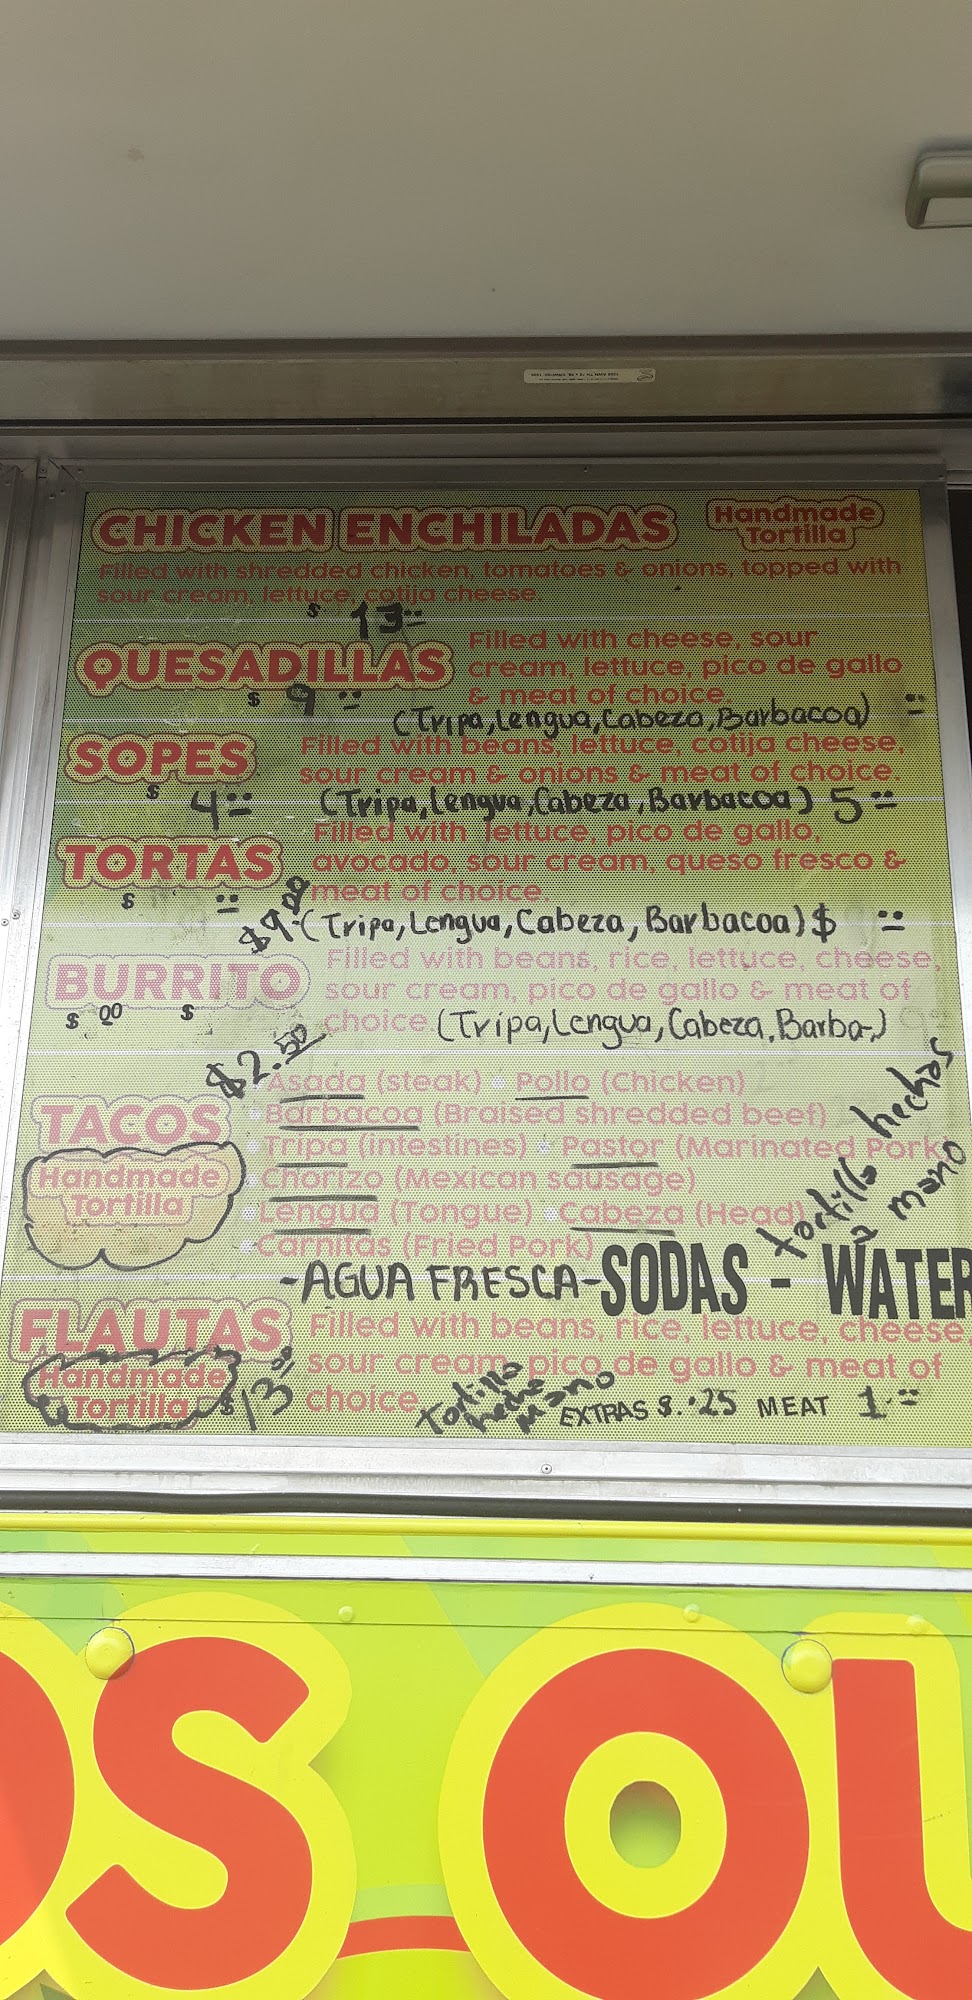 CHICKEN ENCHILADAS Handmade Tortilla
Filled with shredded chicken, tomatoes & onions, topped with
sour cream, lettuce, cotija cheese.
$ 13
QUESADILLAS Filled with cheese, sour
cream, lettuce, pico de gallo
& meat of choice
$ 9
(Tripa, Lengua, Cabeza, Barbacoa)
SOPES Filled with beans, lettuce, cotija cheese,
sour cream & onions & meat of choice.
$ 4 (Tripa, Lengua, Cabeza, Barbacoa) 5
TORTAS Filled with lettuce, pico de gallo,
avocado, sour cream, queso fresco &
meat of choice.
$ $9.00 (Tripa, Lengua, Cabeza, Barbacoa) $
BURRITO Filled with beans, rice, lettuce, cheese,
sour cream, pico de gallo & meat of
choice. (Tripa, Lengua, Cabeza, Barba-)
$ 00 $
$2.50
TACOS
Handmade
Tortilla
Asada (steak) • Pollo (Chicken)
• Barbacoa (Braised shredded beef)
• Tripa (intestines) • Pastor (Marinated Pork
• Chorizo (Mexican sausage)
• Lengua (Tongue) • Cabeza (Head)
• Carnitas (Fried Pork)
tortilla hechas
a mano
-AGUA FRESCA-SODAS - WATER
FLAUTAS Filled with beans, rice, lettuce, cheese
sour cream, pico de gallo & meat of
choice.
Handmade
Tortilla
$13.00
Tortilla
hecha
mano
EXTRAS $.25 MEAT 1
OS OU